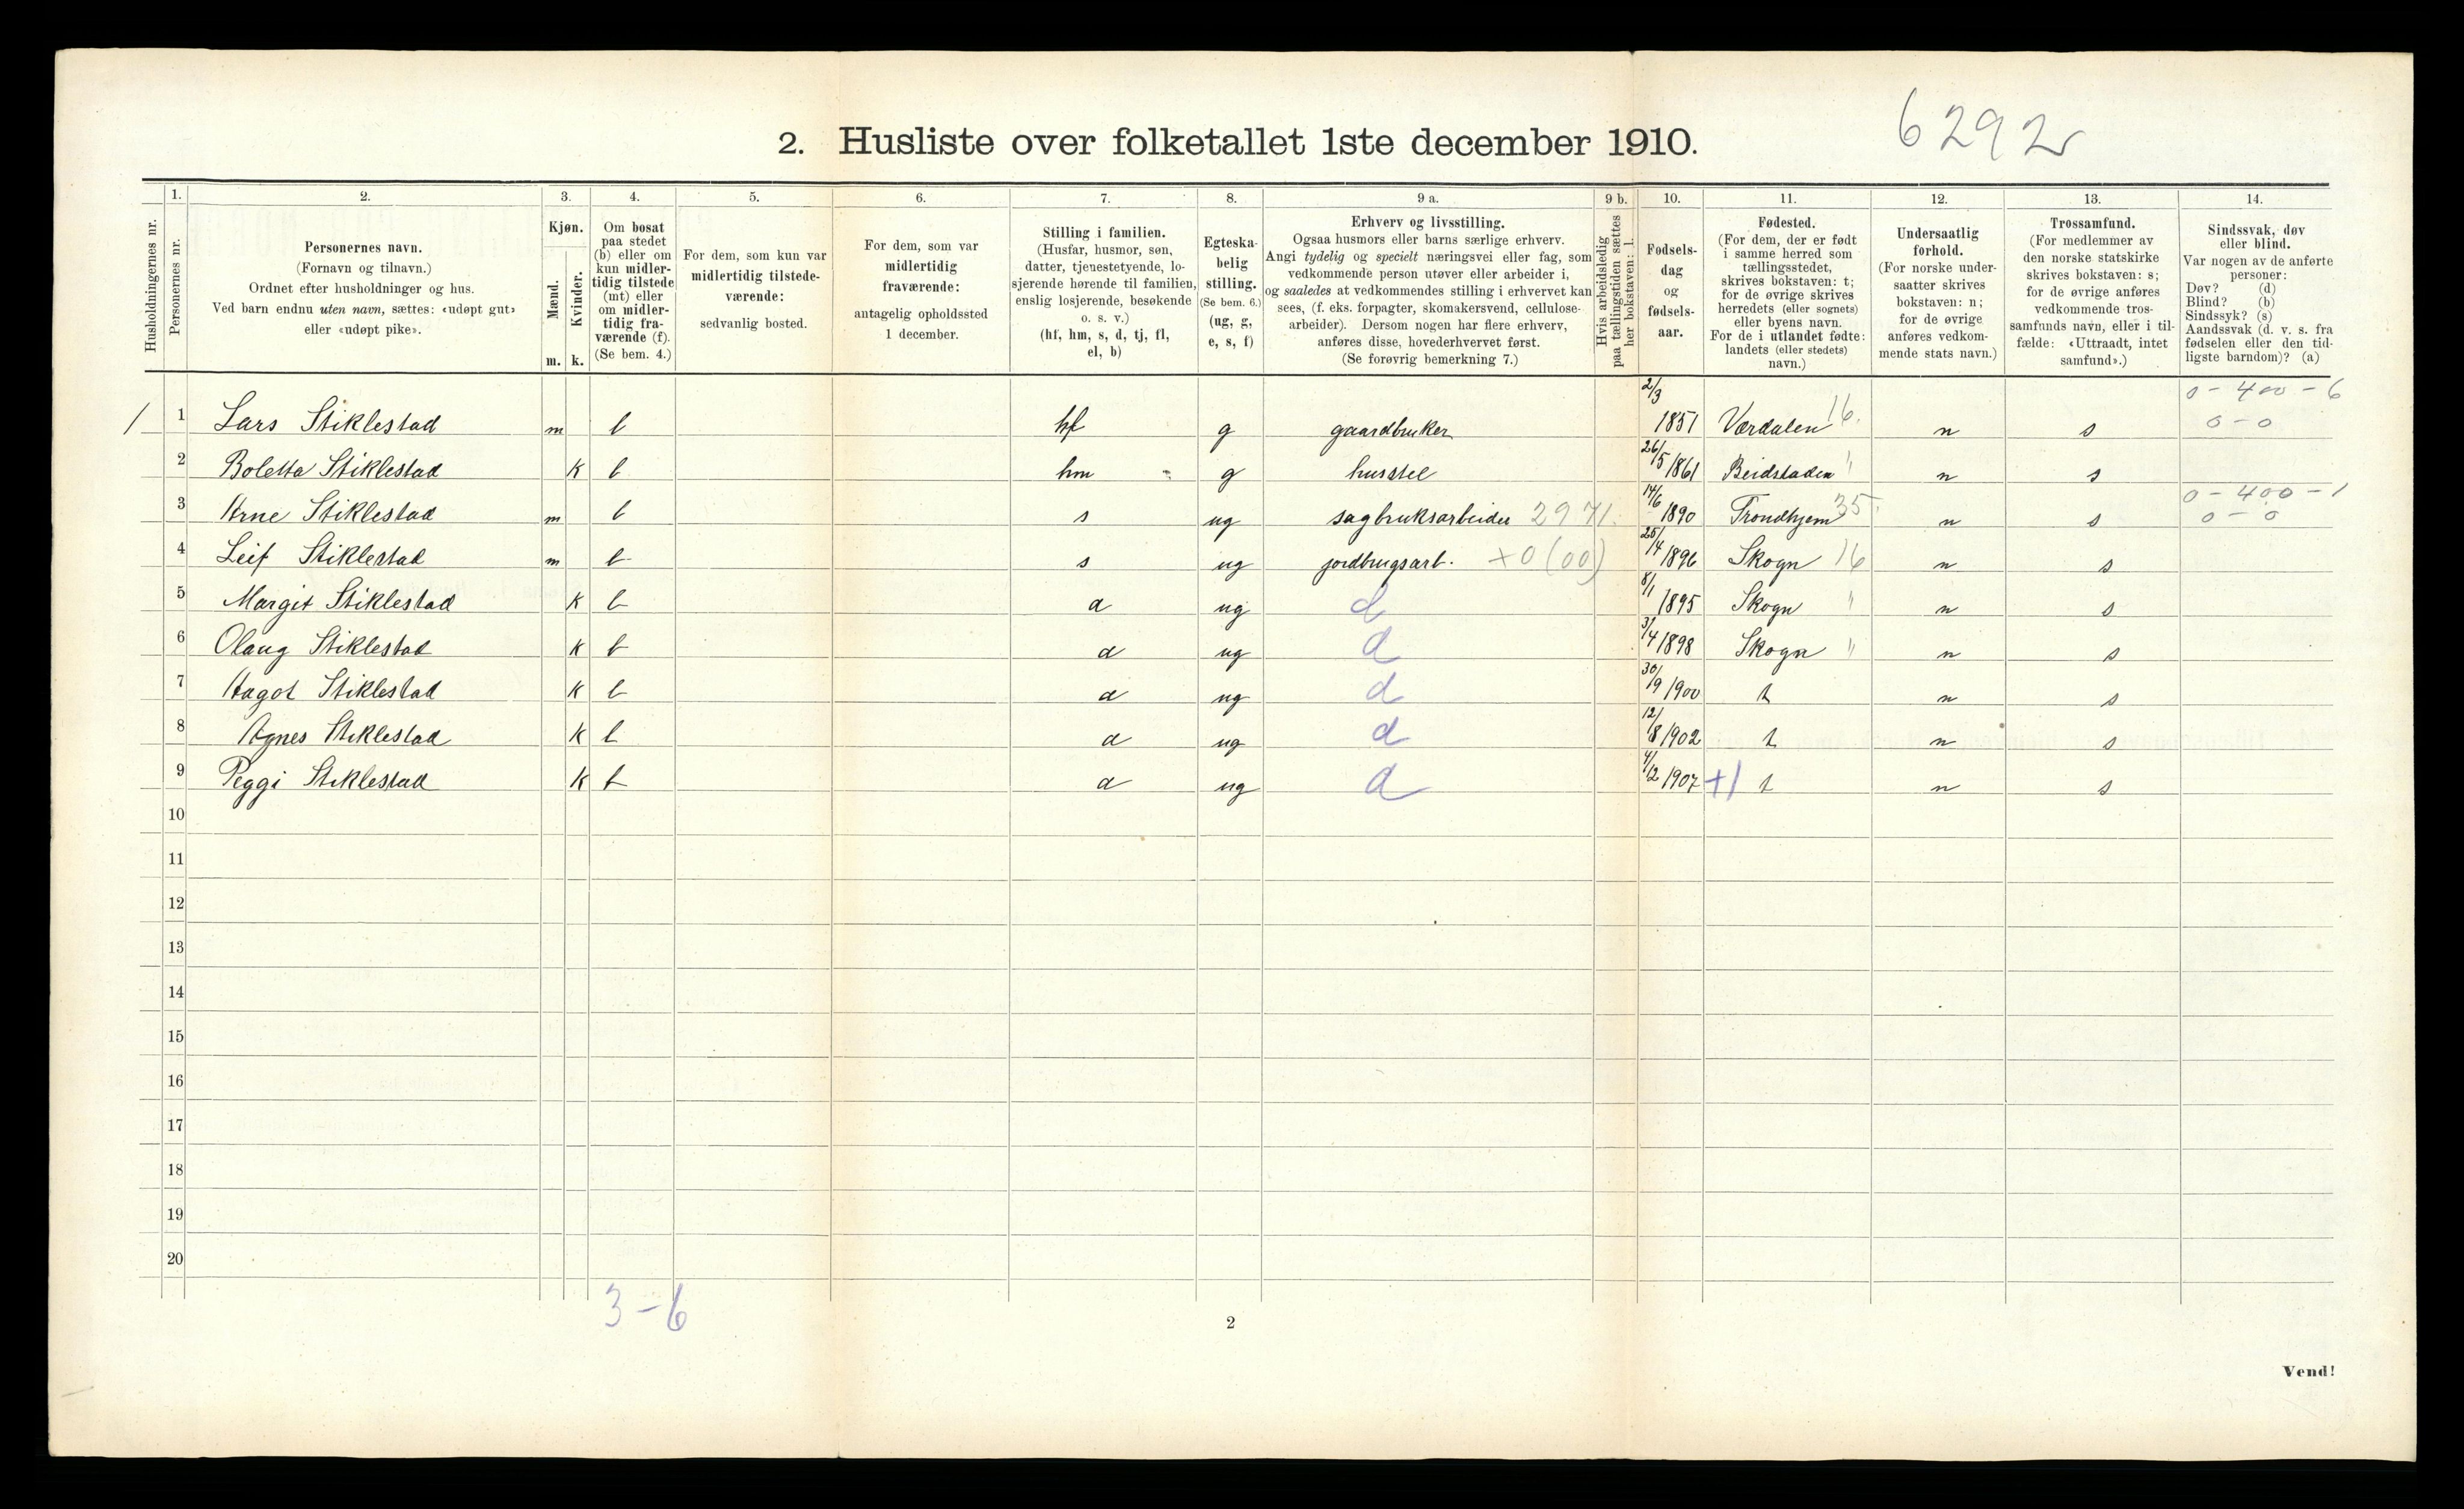 6292
2. Husliste over folketallet 1ste december 1910.
1. 2. 3. 4. 5. 6. 7. 8. 9 a. 9 b. 10. 11. 12. 13. 14.
Husholdningernes nr.
Personernes nr.
Personernes navn.
(Fornavn og tilnavn.)
Ordnet efter husholdninger og hus.
Ved barn endnu uten navn, sættes: «udøpt gut»
eller «udøpt pike».
Kjøn.
Mænd.
Kvinder.
m. k.
Om bosat
paa stedet
(b) eller om
kun midler-
tidig tilstede
(mt) eller
om midler-
tidig fra-
værende (f).
(Se bem. 4.)
For dem, som kun var
midlertidig tilstede-
værende:
sedvanlig bosted.
For dem, som var
midlertidig
fraværende:
antagelig opholdssted
1 december.
Stilling i familien.
(Husfar, husmor, søn,
datter, tjenestetyende, lo-
sjerende hørende til familien,
enslig losjerende, besøkende
o. s. v.)
(hf, hm, s, d, tj, fl,
el, b)
Egteska-
belig
stilling.
(Se bem. 6.)
(ug, g,
e, s, f)
Erhverv og livsstilling.
Ogsaa husmors eller barns særlige erhverv.
Angi tydelig og specielt næringsvei eller fag, som
vedkommende person utøver eller arbeider i,
og saaledes at vedkommendes stilling i erhvervet kan
sees, (f. eks. forpagter, skomakersvend, cellulose-
arbeider). Dersom nogen har flere erhverv,
anføres disse, hovederhvervet først.
(Se forøvrig bemerkning 7.)
Hvis arbeidsledig
paa tællingstiden sættes
her bokstaven: l.
Fødsels-
dag
og
fødsels-
aar.
Fødested.
(For dem, der er født
i samme herred som
tællingsstedet,
skrives bokstaven: t;
for de øvrige skrives
herredets (eller sognets)
eller byens navn.
For de i utlandet fødte:
landets (eller stedets)
navn.)
Undersaatlig
forhold.
(For norske under-
saatter skrives
bokstaven: n;
for de øvrige
anføres vedkom-
mende stats navn.)
Trossamfund.
(For medlemmer av
den norske statskirke
skrives bokstaven: s;
for de øvrige anføres
vedkommende tros-
samfunds navn, eller i til-
fælde: «Uttraadt, intet
samfund».)
Sindssvak, døv
eller blind.
Var nogen av de anførte
personer:
Døv? (d)
Blind? (b)
Sindssyk? (s)
Aandssvak (d. v. s. fra
fødselen eller den tid-
ligste barndom)? (a)
0 - 400 - 6
1 1 Lars Stiklestad m b hf g gaardbruker 2/3 1851 Værdalen 16. n s 0 - 0
2 Boletta Stiklestad k b hm g husstel 26/5 1861 Beidstaden " n s
0 - 400 - 1
3 Arne Stiklestad m b s ug sagbruksarbeider 2971. 14/6 1890 Trondhjem 35. n s 0 - 0
4 Leif Stiklestad m b s ug jordbrugsarb. +0 (00) 25/4 1896 Skogn 16 n s
5 Margit Stiklestad k b d ug d 8/1 1895 Skogn " n s
6 Olaug Stiklestad k b d ug d 3/4 1898 Skogn " n s
7 Aagot Stiklestad k b d ug d 30/9 1900 t n s
8 Agnes Stiklestad k b d ug d 12/8 1902 t n s
9 Peggi Stiklestad k b d ug d 4/12 1907 +1 t n s
10
11
12
13
14
15
16
17
18
19
20
3 - 6
2
Vend!